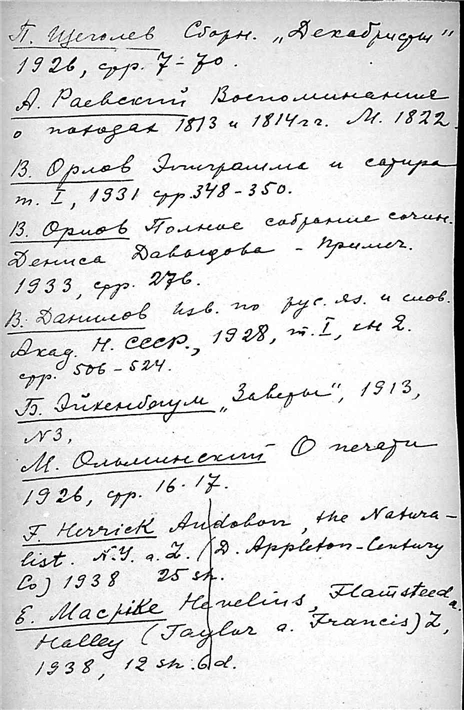 П. Щеголев Сборн. „Декабристы"
1926, стр. 7-70.
А. Раевский Воспоминание
о походах 1813 и 1814 гг. М. 1822
В. Орлов Эпиграмма и сатира
т. I, 1931 стр. 348-350.
В. Орлов Полное собрание сочин.
Дениса Давыдова - Примеч.
1933, стр. 276.
В. Данилов Изв. по рус. яз. и слов.
Акад. Н. СССР., 1928, т. I, кн 2.
стр. 506-524.
Б. Эйхенбаум „Заветы", 1913,
N3,
М. Ольминский О печати
1926, стр. 16-17.
F. Herrick Audobon, the Natura-
list. N.Y. a. L. (D. Appleton-Century
Co) 1938 25 sh.
E. Macpike Hevelius, Flamsteed a.
Halley (Taylor a. Francis) L,
1938, 12 sh. 6d.